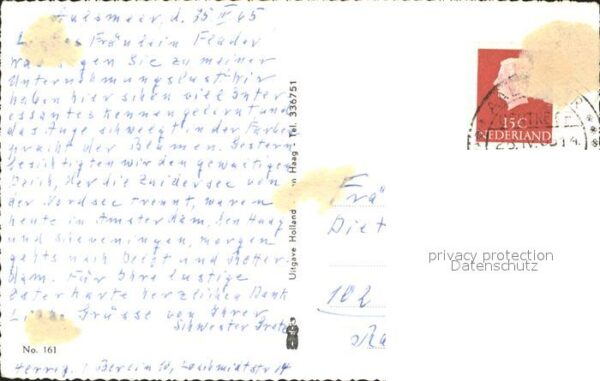 Aalsmeer, d. 25 IV 65
Liebes Fräulein Flader
Was sagen Sie zu meiner
Unternehmungslust? Wir
haben hier schon viel Inter
essantes kennengelernt und
das Auge schwelgt in der Farben
pracht der Blumen. Gestern
besichtigten wir den gewaltigen
Deich, der die Zuidersee von
der Nordsee trennt, waren
heute in Amsterdam, den Haag
und Scheveningen, morgen
gehts nach Delft und Rotter
dam. Für Ihre lustige
Osterkarte herzlichen Dank
Liebe Grüsse von Ihrer
Schwester Greta
No. 161
Berlin
Uitgave Holland - Den Haag - Tel. 336751
15C
NEDERLAND
Frä
Diet
102
privacy protection
Datenschutz